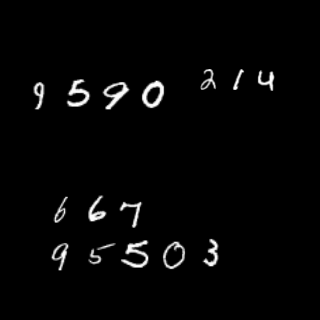 9590 214
667
95503